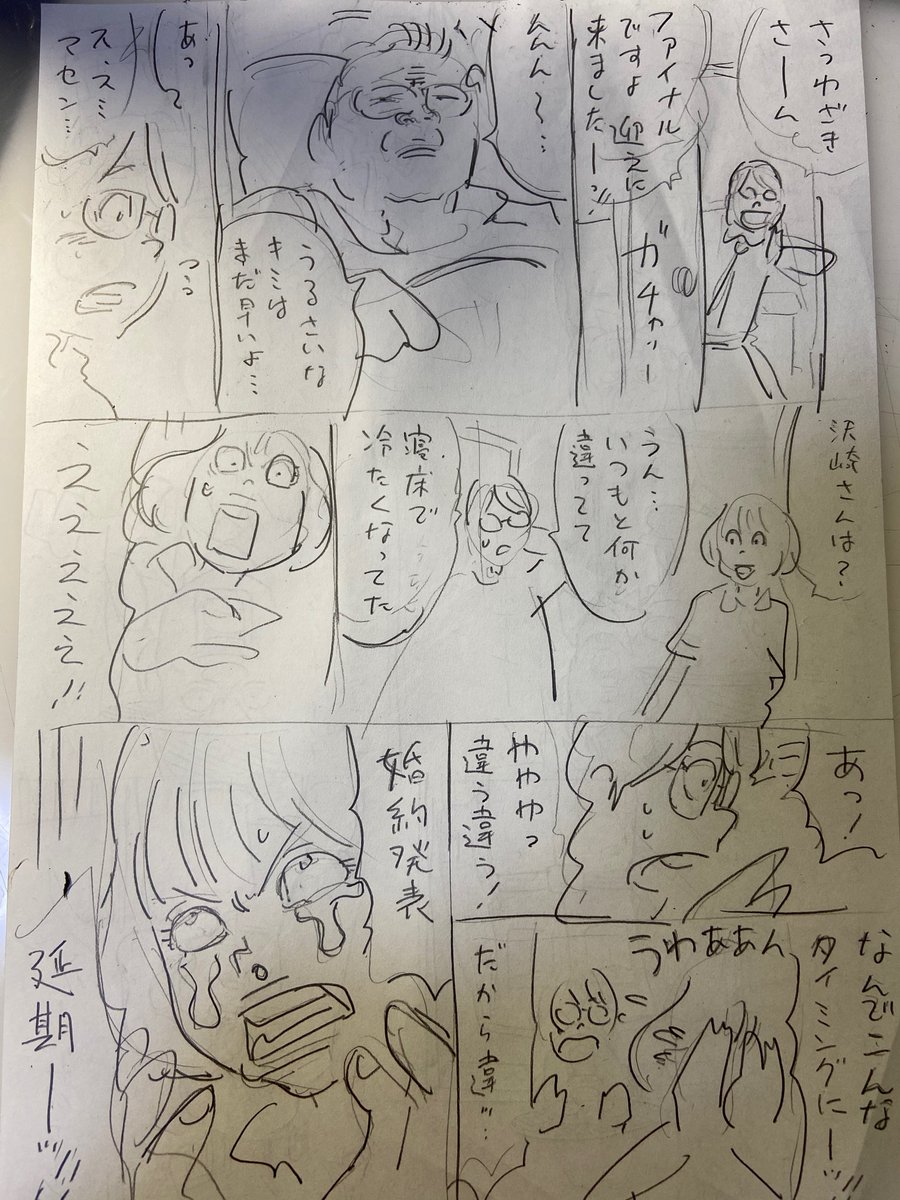 さっわざき
さーん
ファイナル
ですよ 迎えに
来ましたーッ!!
ガチャッー
んんん〜…
うるさいな
キミは
まだ早いよ…
あっ
ス、スミ
マセン…
沢崎さんは?
うん…
いつもと何か
違ってて
寝床で
冷たくなってた
えええええ!!
あっ!
ややゃっ
違う違う!
なんでこんな
タイミングにーッ
うわああん
だから違ッ…
婚約発表
延期ーッ!!